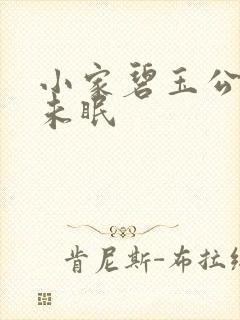 小家碧玉公
未眠
肯尼斯-布拉